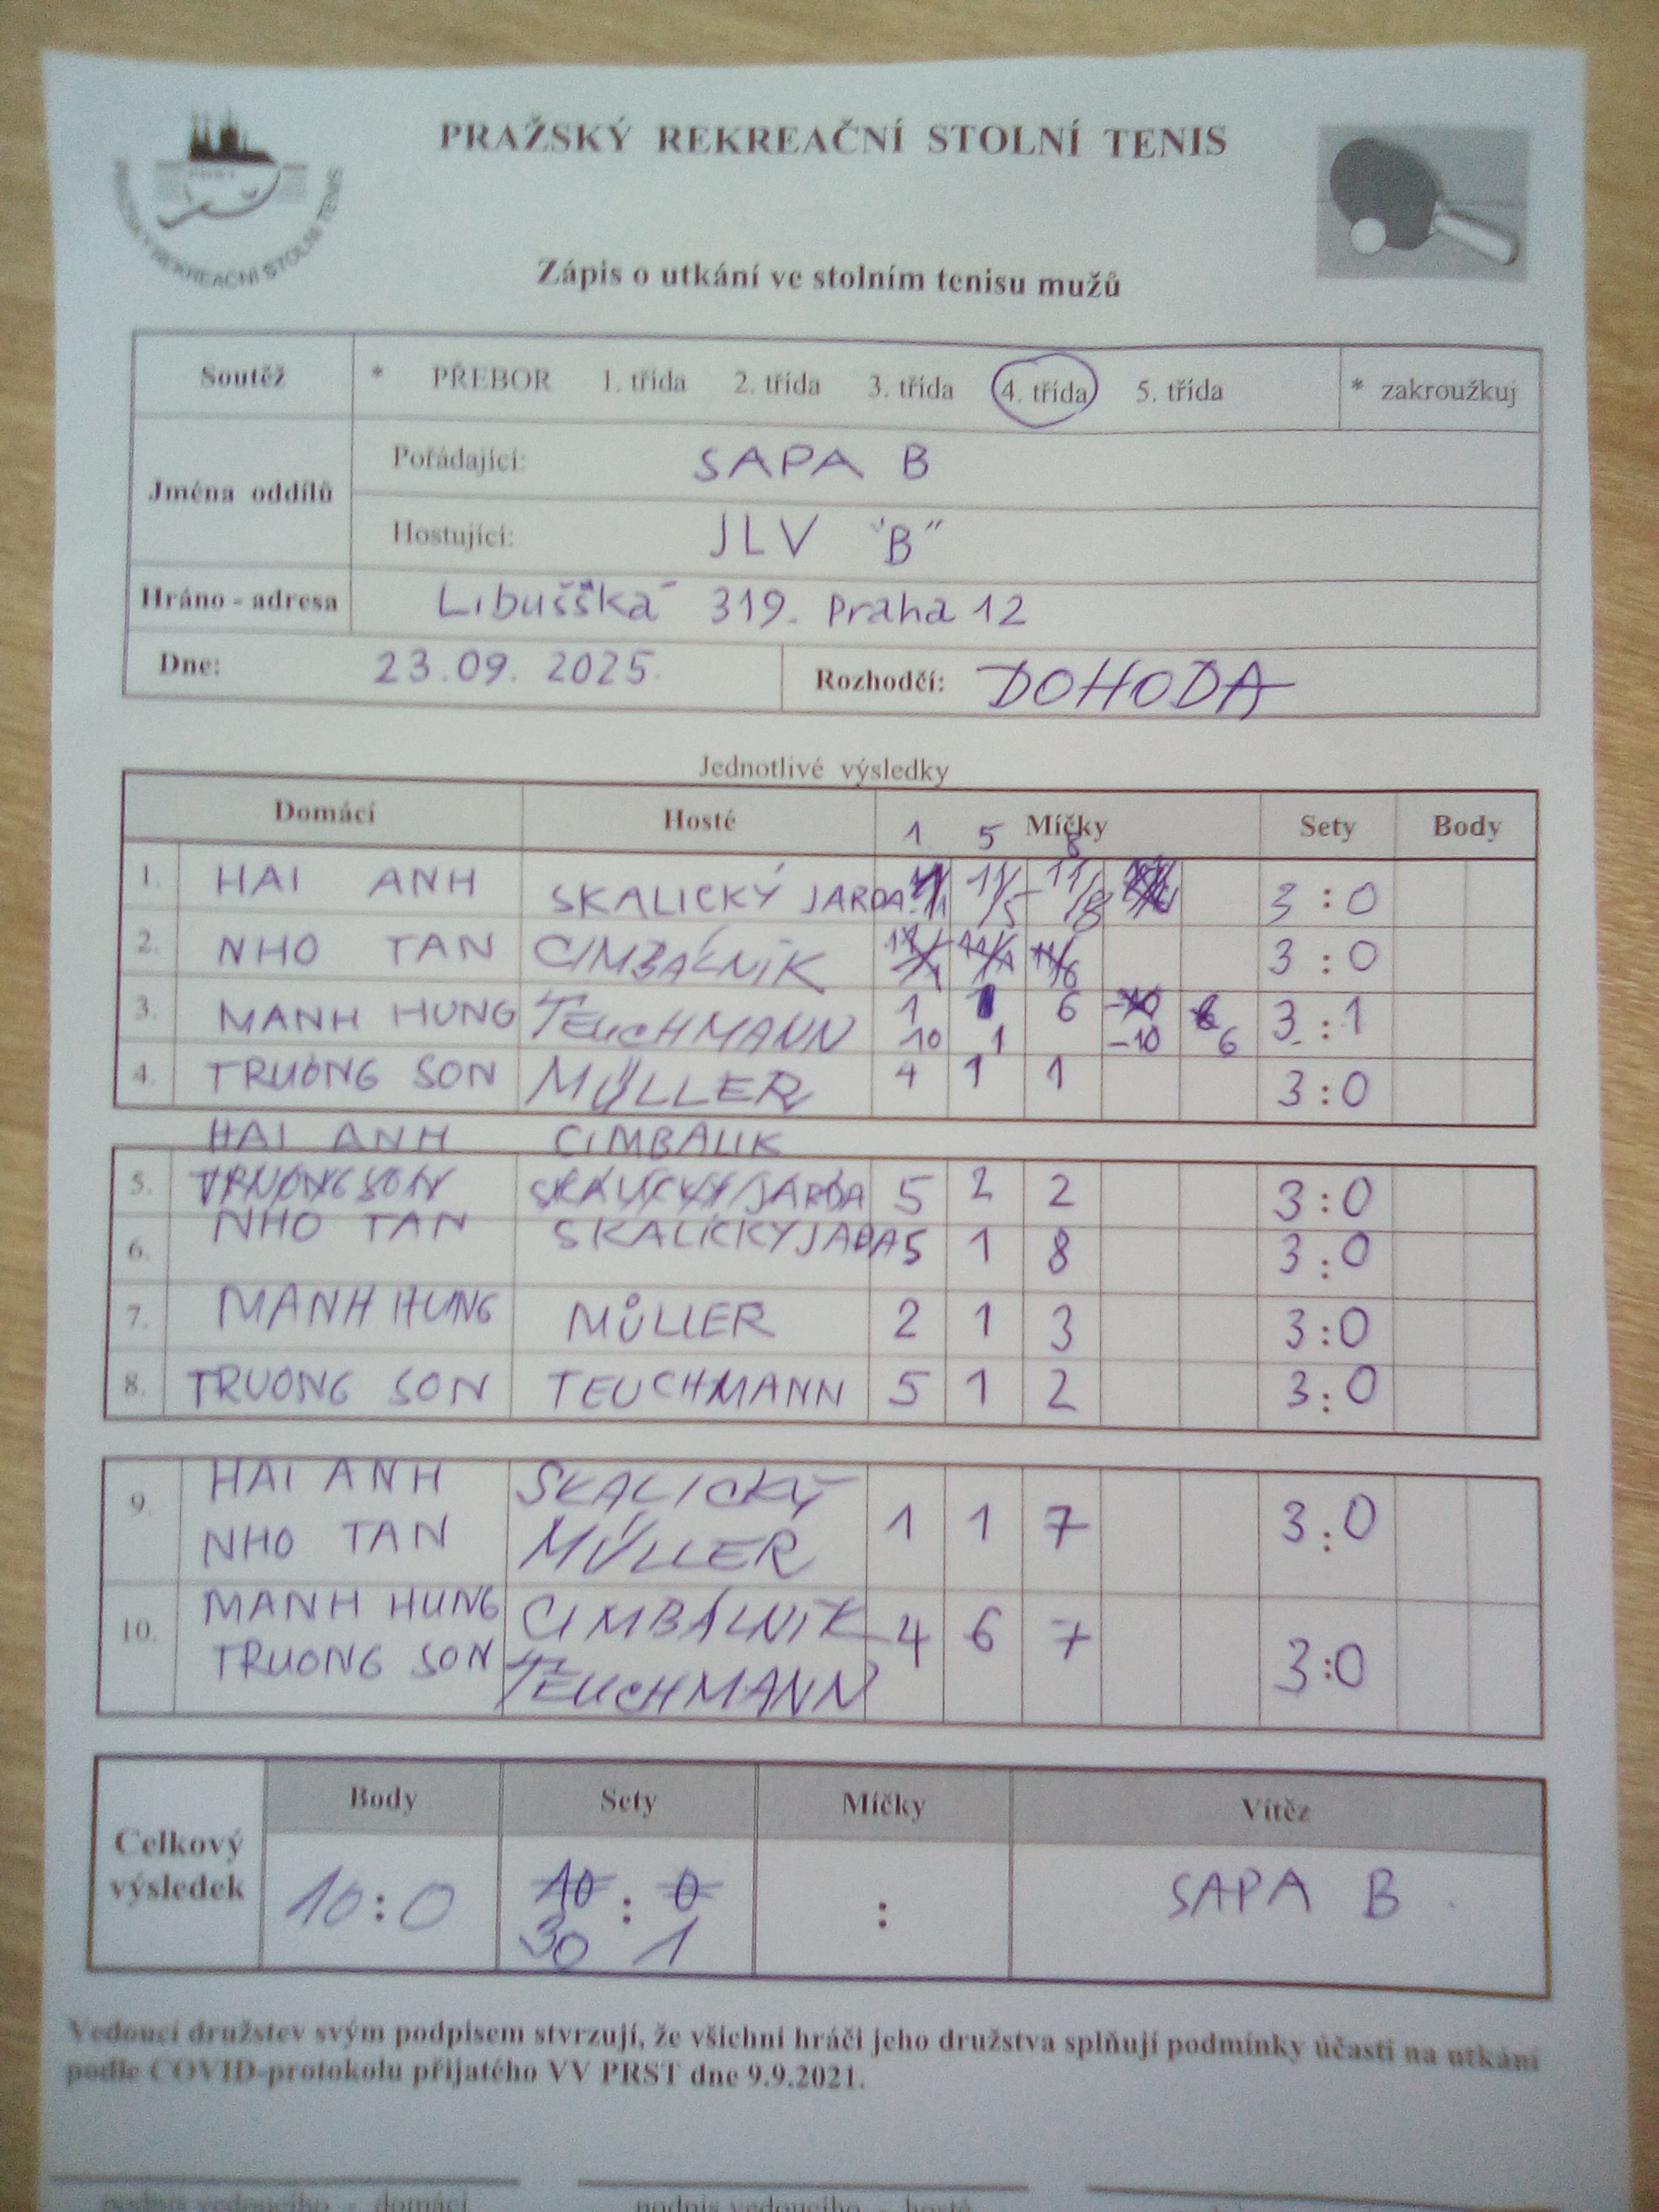 PRAŽSKÝ REKREAČNÍ STOLNÍ TENIS
PRAŽSKÝ REKREAČNÍ STOLNÍ TENIS
Zápis o utkání ve stolním tenisu mužů
Soutěž * PŘEBOR 1. třída 2. třída 3. třída 4. třída 5. třída * zakroužkuj
Jména oddílů
Pořádající: SAPA B
Hostující: JLV "B"
Hráno - adresa Libušská 319. Praha 12
Dne: 23.09. 2025. Rozhodčí: DOHODA
Jednotlivé výsledky
Domácí Hosté Míčky Sety Body
1 5 8
1. HAI ANH SKALICKÝ JARDA 11/1 11/5 11/8 3:0
2. NHO TAN CIMBÁLNÍK 11/1 11/1 11/6 3:0
1 6
3. MANH HUNG TEUCHMANN 10 1 -10 6 3:1
4. TRUONG SON MÜLLER 4 1 1 3:0
HAI ANH CIMBALIK
5. TRUONG SON SKALICKÝ JARDA 5 2 2 3:0
6. NHO TAN SKALICKY JADA 5 1 8 3:0
7. MANH HUNG MŮLLER 2 1 3 3:0
8. TRUONG SON TEUCHMANN 5 1 2 3:0
HAI ANH SKALICKÝ
9. 1 1 7 3:0
NHO TAN MÜLLER
MANH HUNG CIMBÁLNÍK
10. 4 6 7 3:0
TRUONG SON TEUCHMANN
Body Sety Míčky Vítěz
Celkový výsledek 10:0 10:0 : SAPA B
30 1
Vedoucí družstev svým podpisem stvrzují, že všichni hráči jeho družstva splňují podmínky účasti na utkání
podle COVID-protokolu přijatého VV PRST dne 9.9.2021.
podpis vedoucího - domácí podpis vedoucího - hosté